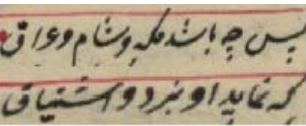 پس چه باشد مکه و شام و عراق
که نماید او نبرد و اشتیاق